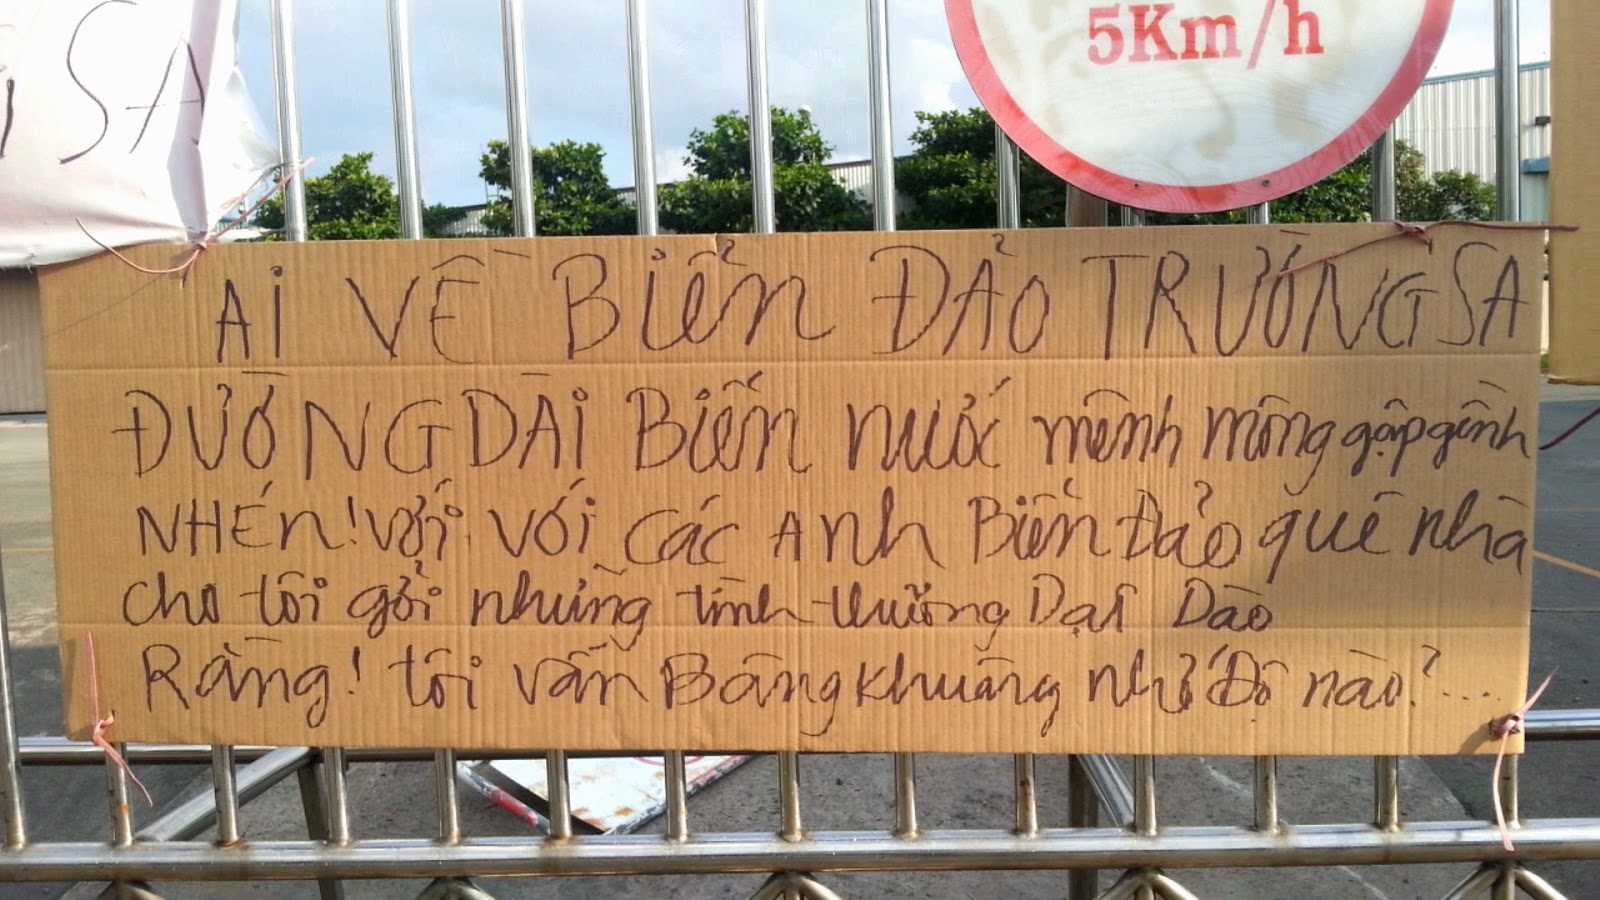 5Km/h
i SA
AI VỀ BIỂN ĐẢO TRƯỜNG SA
ĐƯỜNG DÀI BIển nước mênh mông gập gềnh
NHÉn! với với các Anh Biển Đảo quê nhà
cho tôi gởi những tình thương Dạt Dào
Rằng! tôi vẫn Bâng khuâng như độ nào?....